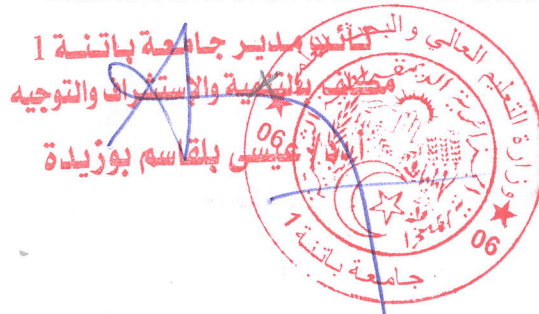 نائب مدير جامعة باتنة 1
مكلف بالتنمية والإستشراف والتوجيه
أ.د/ عيسى بلقاسم بوزيدة
وزارة التعليم العالي و البحث العلمي
06
06
جامعة باتنة 1